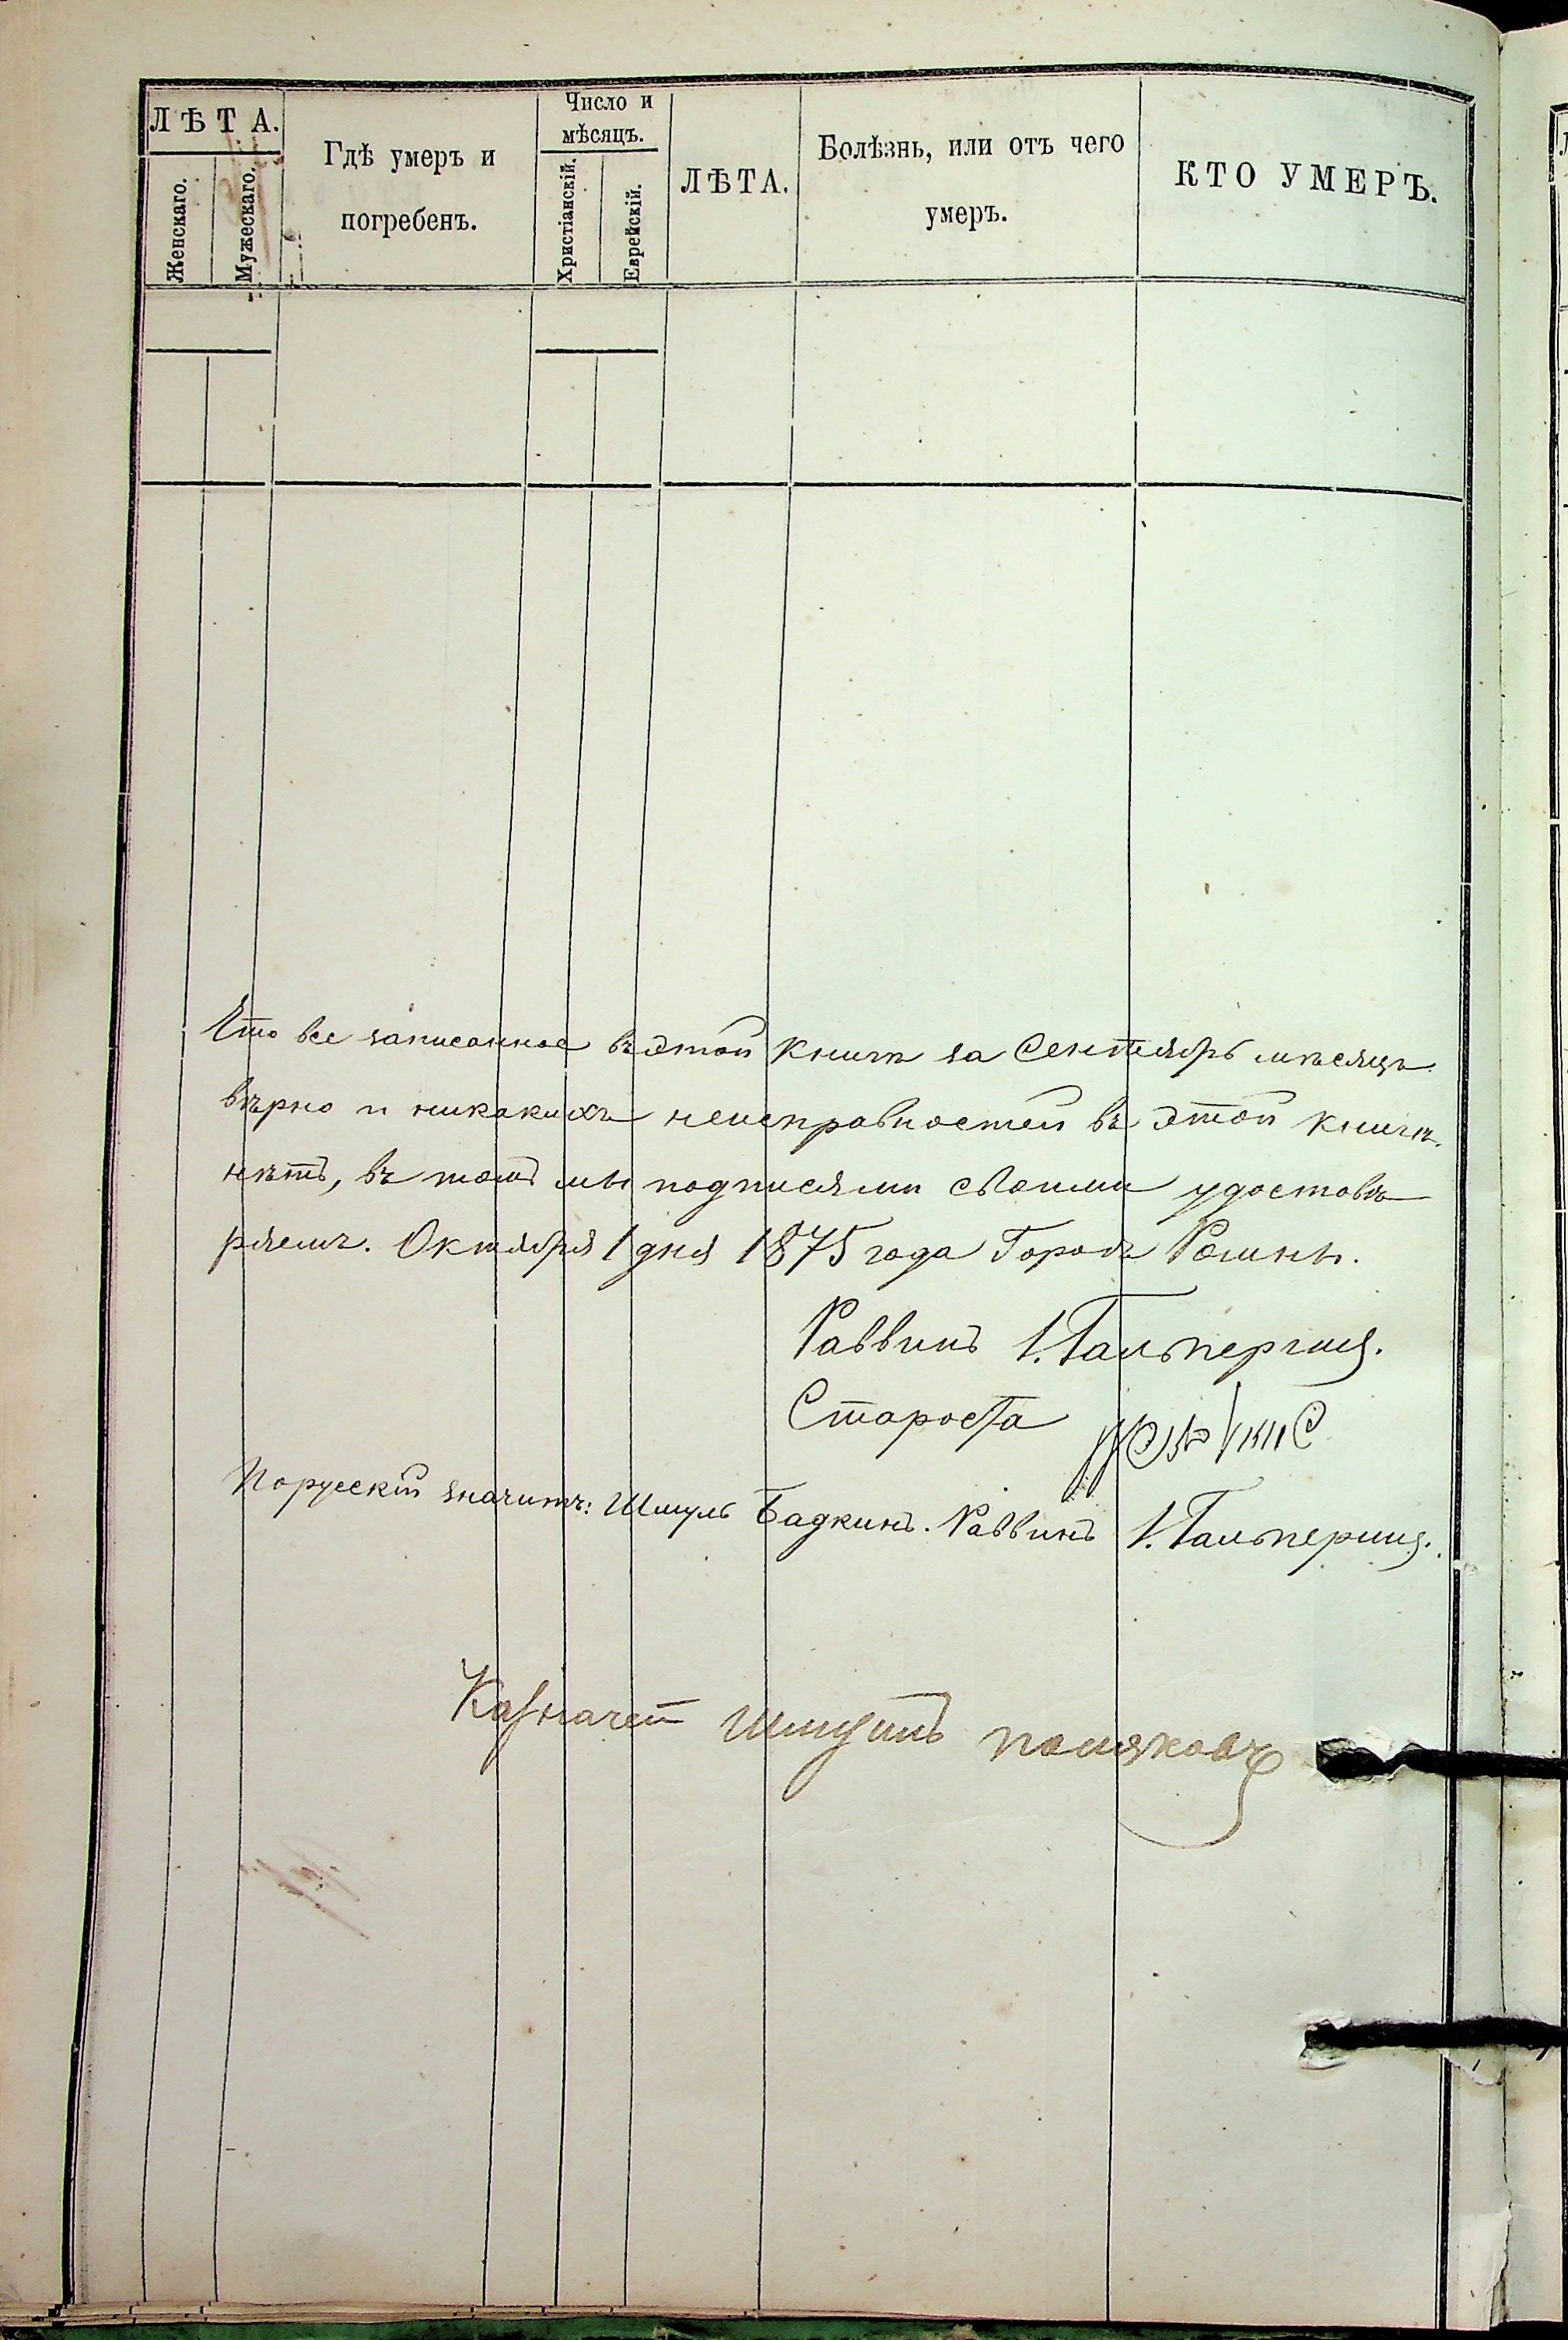 ЛѢТА.
Женскаго.
Мужескаго.
Гдѣ умеръ и
погребенъ.
Число и
мѣсяцъ.
Христіанскій.
Еврейскій.
ЛѢТА.
Болѣзнь, или отъ чего
умеръ.
КТО УМЕРЪ.
Что все записанное въ этой книгѣ за Сентябрь мѣсяцъ
вѣрно и никакихъ неисправностей въ этой книгѣ
нѣтъ, въ томъ мы подписями своими удостовѣ
ряемъ. Октября 1 дня 1875 года Городъ Ромны.
Раввинъ І. Гальперинъ.
Староста
Порускій значитъ: Шмуль Бадкинъ. Раввинъ І. Гальперинъ.
Казначей Шмуль Поляковъ